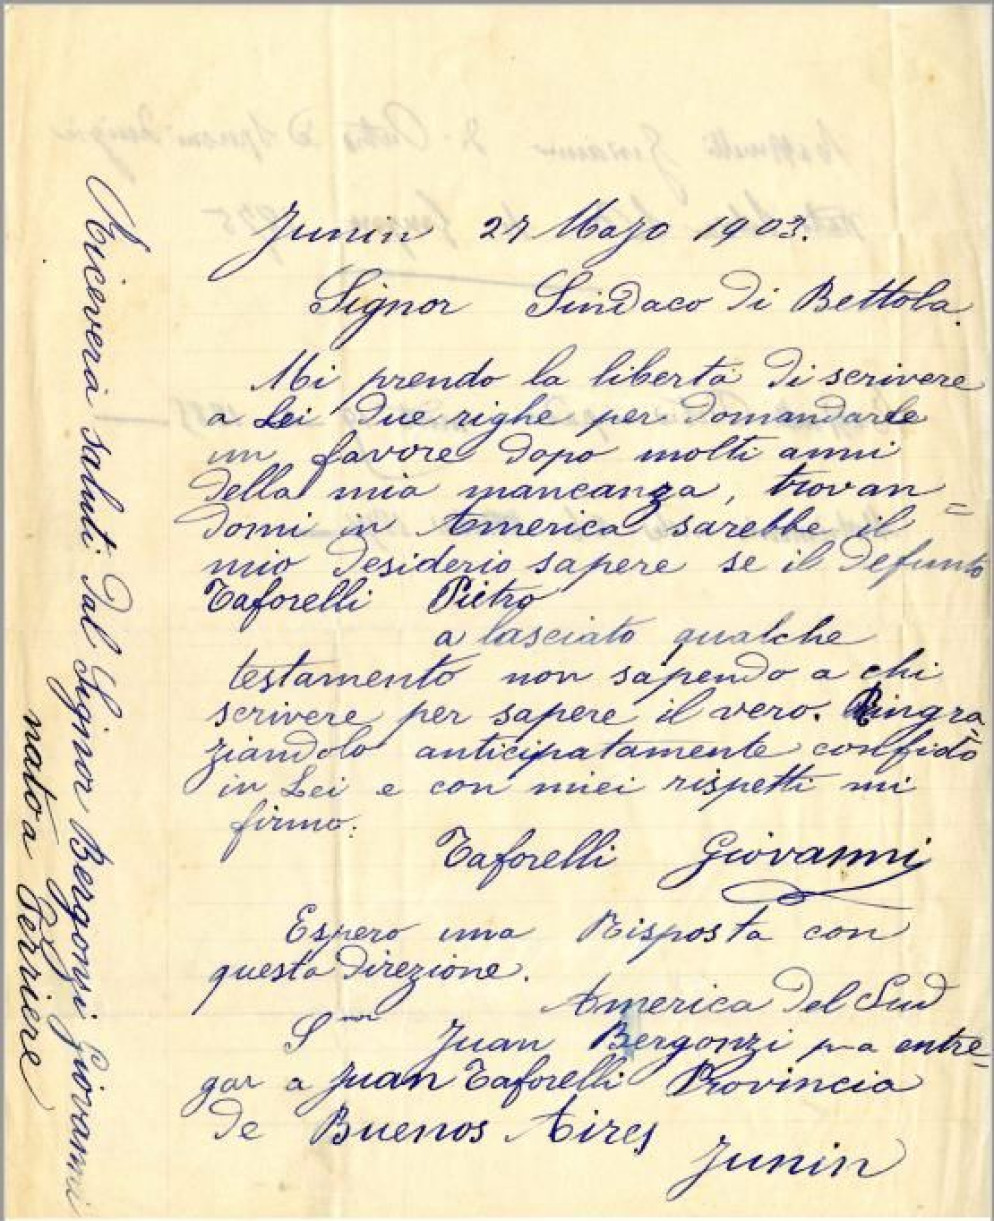 Junin 27 Majo 1903.
Signor Sindaco di Bettola.
Mi prendo la libertà di scrivere
a Lei due righe per domandarle
un favore dopo molti anni
della mia mancanza, trovan=
domi in America sarebbe il
mio desiderio sapere se il defunto
Taforelli Pietro
a lasciato qualche
testamento non sapendo a chi
scrivere per sapere il vero. Ringra
ziandolo anticipatamente confido
in Lei e con miei rispetti mi
firmo:
Taforelli Giovanni
Espero una Risposta con
questa direzione.
America del Sud
Snor Juan Bergonzi pra entre-
gar a Juan Taforelli Provincia
de Buenos Aires
Junin
Riceverà saluti dal Signor Bergonzi Giovanni
nato a Ferriere